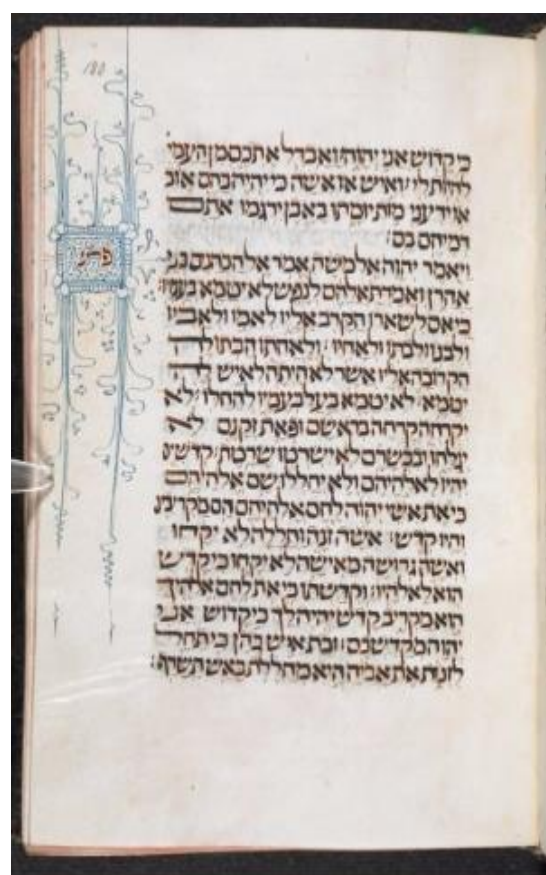 כי קדוש אני יהוה ואבדל אתכם מן העמי
להיות לי: ואיש או אשה כי יהיה בהם אוב
או ידעני מות יומתו באבן ירגמו אתם
דמיהם בם:
ויאמר יהוה אל משה אמר אל הכהנים בני
אהרן ואמרת אלהם לנפש לא יטמא בעמיו:
כי אם לשארו הקרב אליו לאמו ולאביו
ולבנו ולבתו ולאחיו: ולאחתו הבתולה
הקרובה אליו אשר לא היתה לאיש לה
יטמא: לא יטמא בעל בעמיו להחלו: לא
יקרחה קרחה בראשם ופאת זקנם לא
יגלחו ובבשרם לא ישרטו שרטת: קדשים
יהיו לאלהיהם ולא יחללו שם אלהיהם
כי את אשי יהוה לחם אלהיהם הם מקריבם
והיו קדש: אשה זנה וחללה לא יקחו
ואשה גרושה מאישה לא יקחו כי קדש
הוא לאלהיו: וקדשתו כי את לחם אלהיך
הוא מקריב קדש יהיה לך כי קדוש אני
יהוה מקדשכם: ובת איש כהן כי תחל
לזנות את אביה היא מחללת באש תשרף: